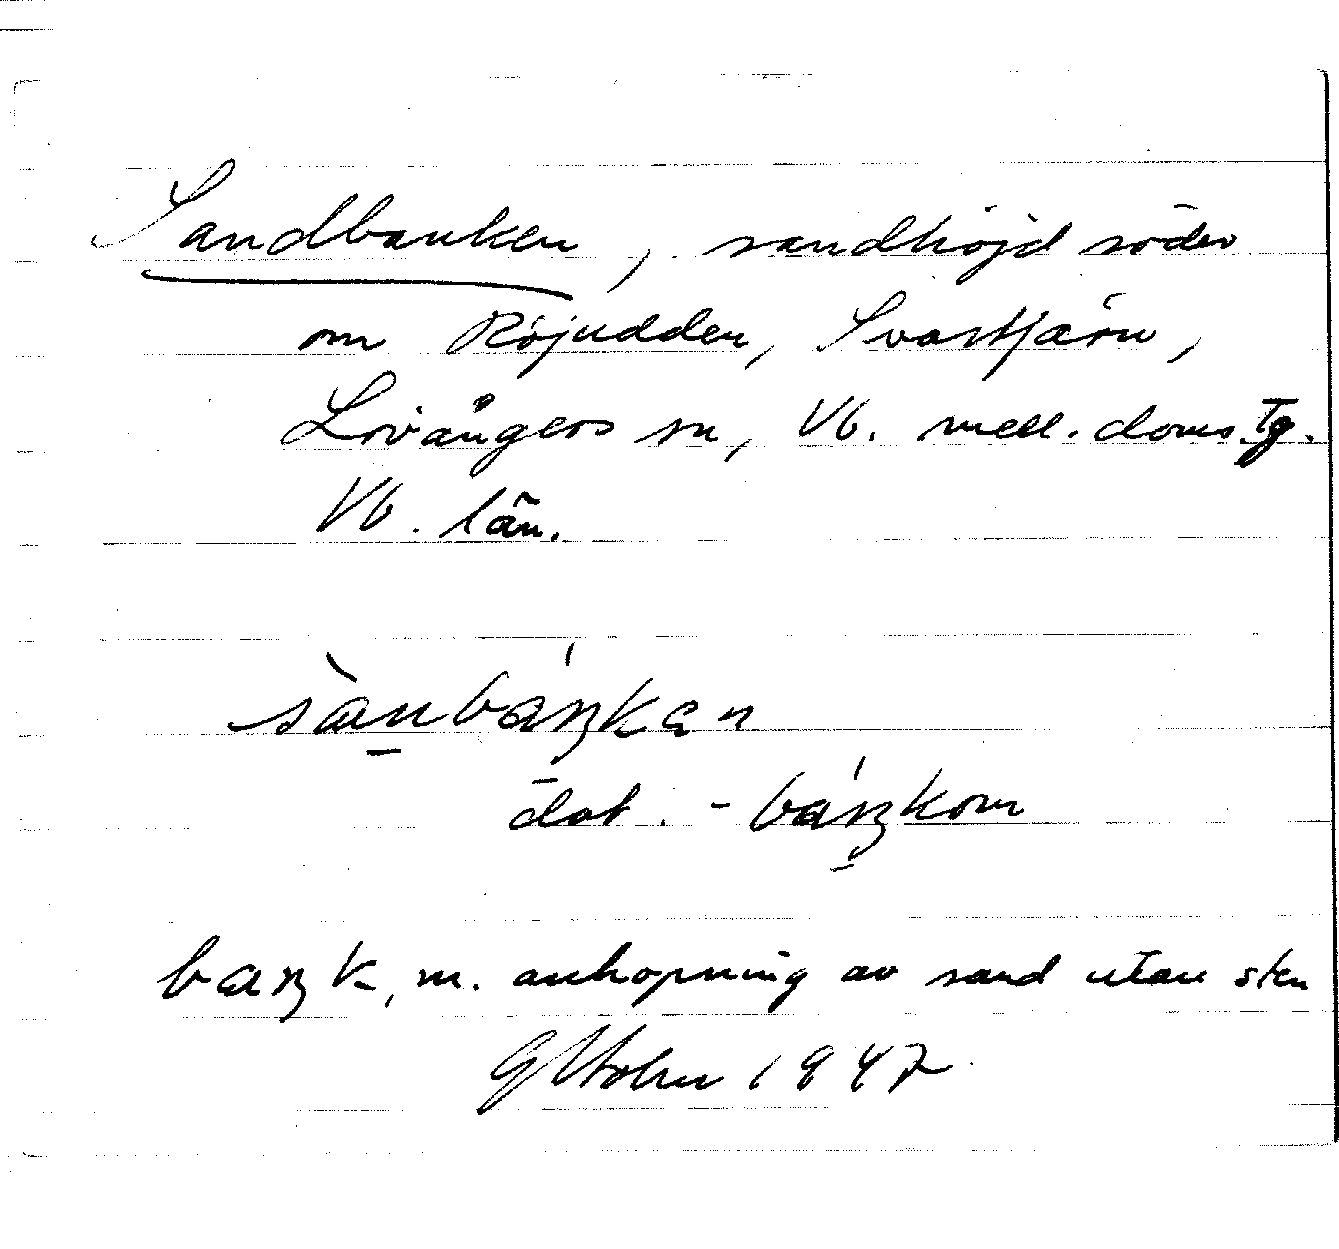 Sandbanken, sandhöjd söder
om Röjudden, Svarttjärn,
Lövångers sn, Vb. mell. doms. tg.
Vb. län.
sànbáŋkan
dat. -báŋkom
baŋk, m. anhopning av sand utan sten
1947